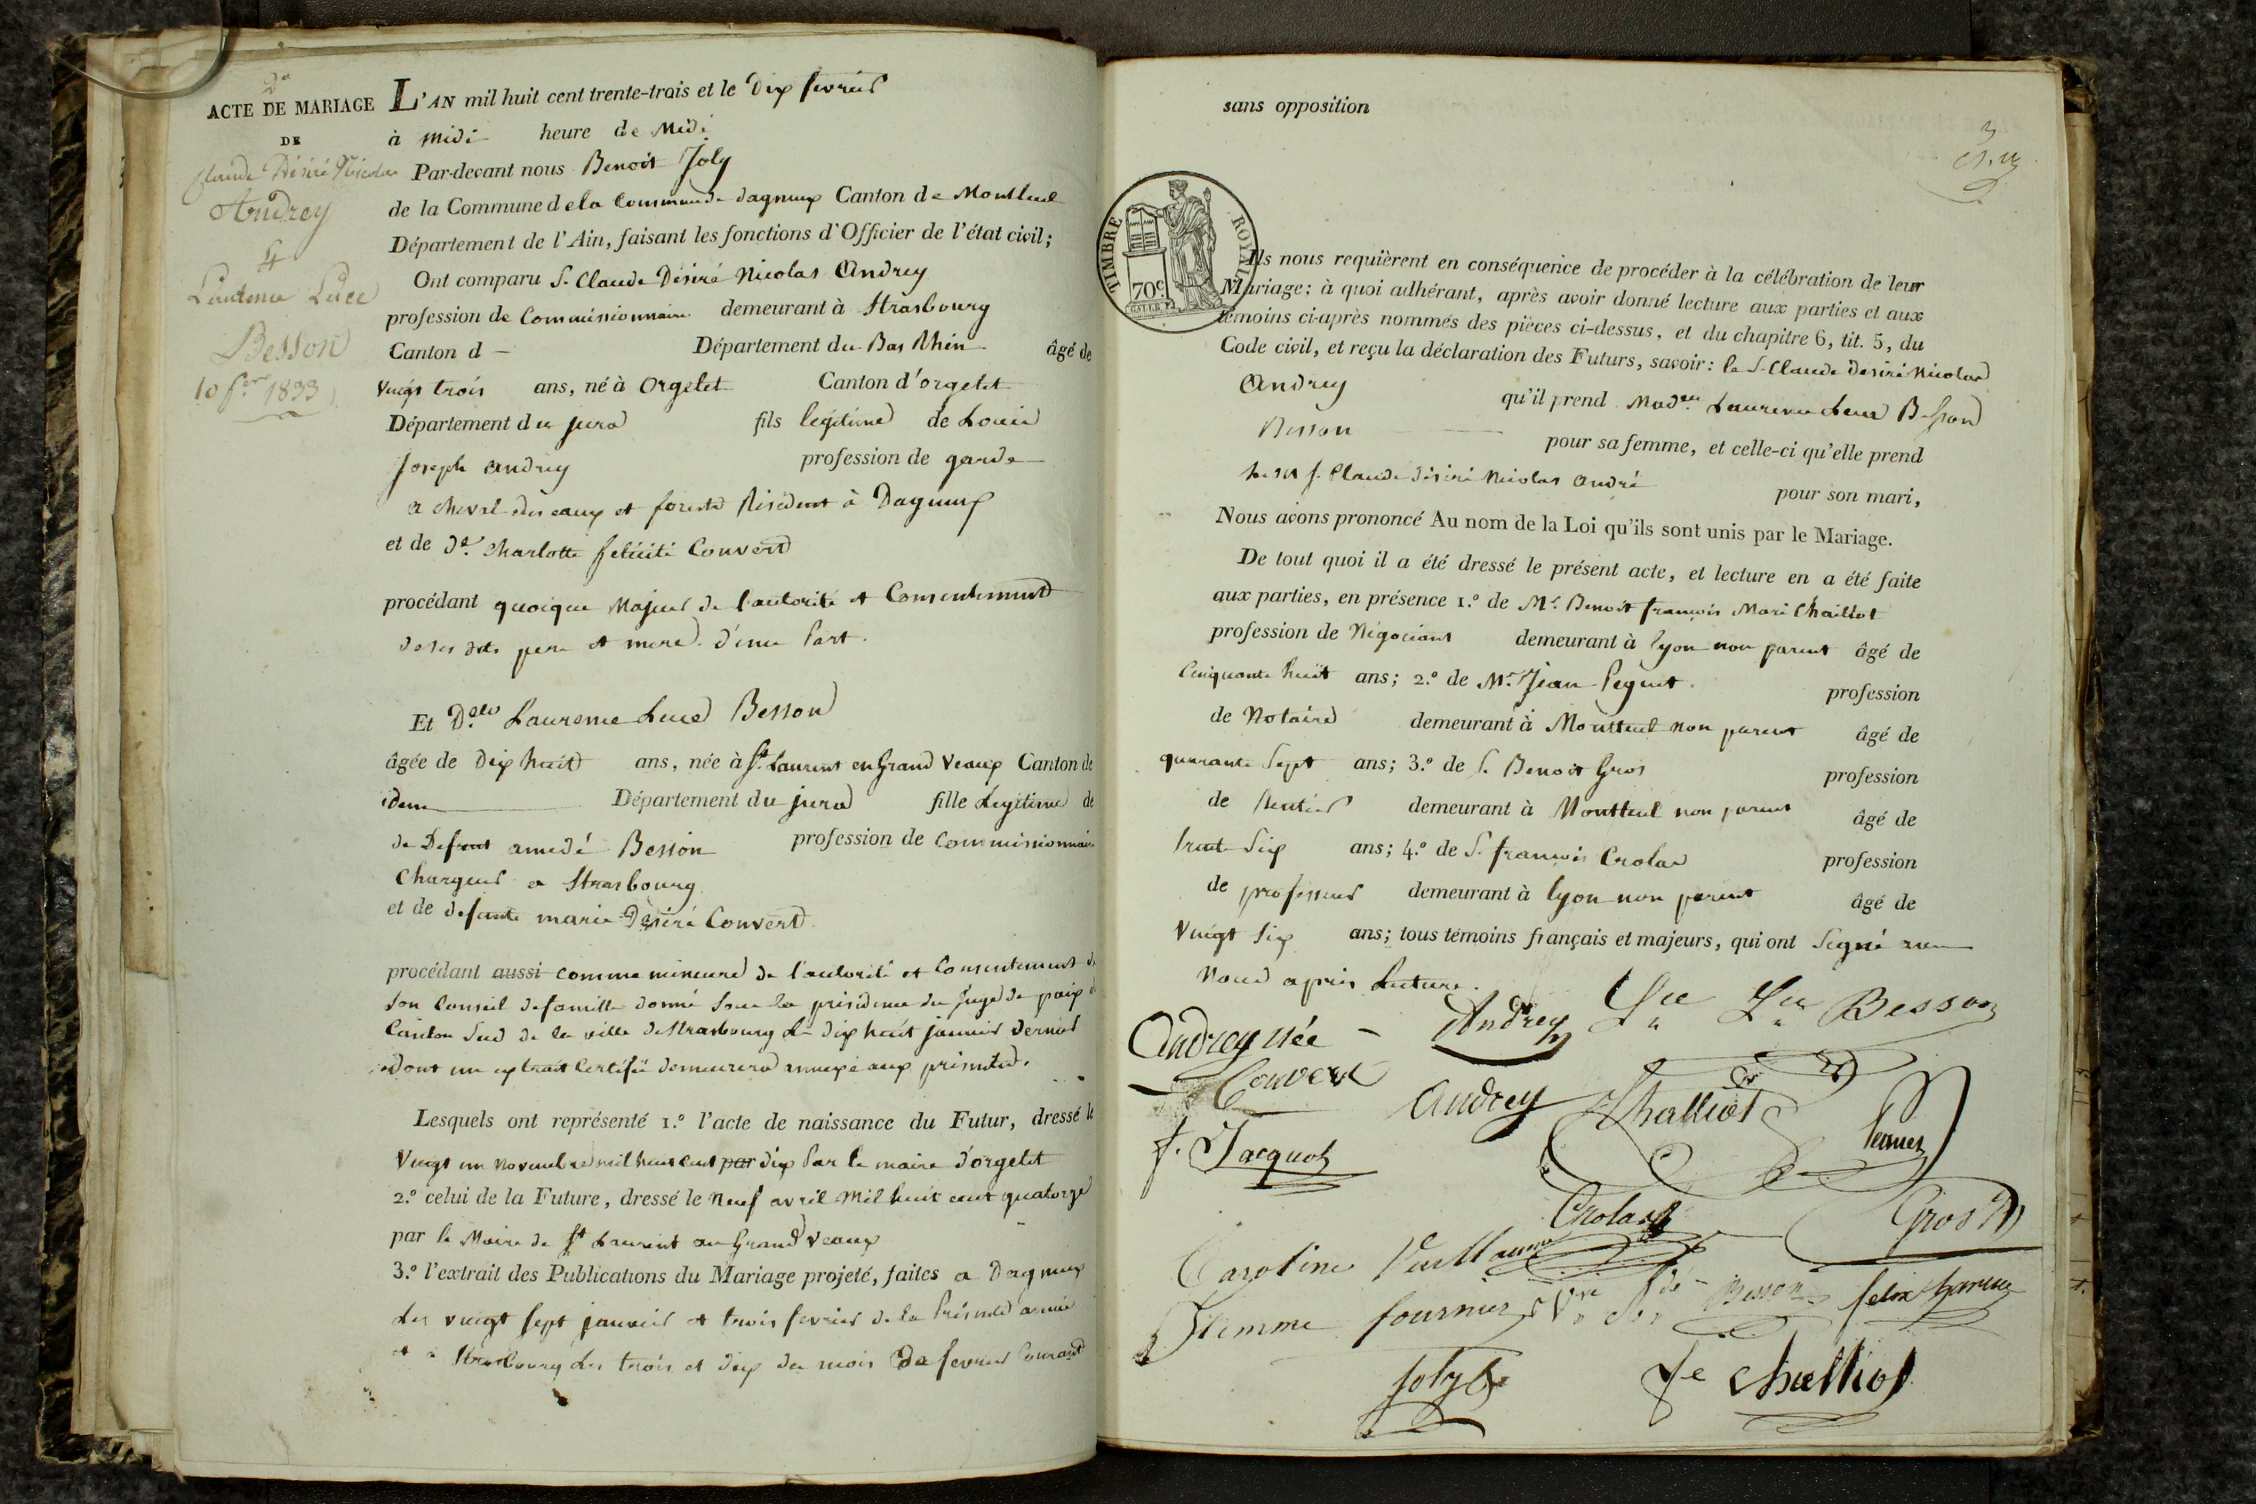 2e
ACTE DE MARIAGE
DE
Claude Désiré Nicolas
Andrey
Et
Laurence Luce
Besson
10 fer 1833
L'AN mil huit cent trente-trois et le Dix fevrier
à midi heure de Midi
Par-devant nous Benoit Joly
de la Commune de la Commune de dagneux Canton de Montluel
Département de l'Ain, faisant les fonctions d'Officier de l'état civil;
Ont comparu S. Claude Désiré Nicolas Andrey
profession de Commissionnaire demeurant à Strasbourg
Canton d - Département du Bas Rhin âgé de
vingt trois ans, né à Orgelet Canton d'orgelet
Département du jura fils legitime de Louis
Joseph Andrey profession de garde
a cheval des eaux et forests Résident à Dagneux
et de De. Charlotte felicité Convert
procédant quoique Majeur de l'autorité et Consentement
de ses dits pere et mere. d'une Part.
Et Delle Laurence Luce Besson
âgée de Dix huit ans, née à St. Laurent en Grand Veaux Canton de
idem Département du jura fille Legitime de
de Defunt amedé Besson profession de Commissionnaire
Chargeur a Strasbourg
et de defunte marie Désiré Convert
procédant aussi comme mineure de l'autorité et Consentement de
son Conseil de famille donné sous la présidence du Juge de paix du
Canton Sud de la ville de Strasbourg Le dix huit janvier dernier
dont un extrait Certifié demeurera annexé aux présentes.
Lesquels ont représenté 1.º l'acte de naissance du Futur, dressé le
Vingt un novembre mil huit cent par dix Par le maire d'orgelet
2.º celui de la Future, dressé le Neuf avril Mil huit cent quatorze
par le Maire de St Laurent au Grand Veaux
3.º l'extrait des Publications du Mariage projeté, faites a Dagneux
Les vingt sept janvier et trois fevrier de la Présente année
et a Strasbourg Les trois et dix du mois De fevrier Courant
sans opposition
3
TIMBRE ROYAL
70c
Ils nous requièrent en conséquence de procéder à la célébration de leur
Mariage; à quoi adhérant, après avoir donné lecture aux parties et aux
témoins ci-après nommés des pièces ci-dessus, et du chapitre 6, tit. 5, du
Code civil, et reçu la déclaration des Futurs, savoir: le S. Claude Desiré Nicolas
Andrey qu'il prend Madelle Laurence Luce Besson
Besson pour sa femme, et celle-ci qu'elle prend
S. Claude Désiré Nicolas André pour son mari,
Nous avons prononcé Au nom de la Loi qu'ils sont unis par le Mariage.
De tout quoi il a été dressé le présent acte, et lecture en a été faite
aux parties, en présence 1.º de Mr. Benoit françois Mari Chailliot
profession de Négociant demeurant à lyon non parent âgé de
Cinquante huit ans; 2.º de Mr. Jean Peguet. profession
de Notaire demeurant à Montluel non parent âgé de
quarante Sept ans; 3.º de S. Benoit Gros profession
de Rentier demeurant à Montluel non parent âgé de
trente Six ans; 4.º de S. françois Crolas profession
de professeur demeurant à lyon non parent âgé de
Vingt Six ans; tous témoins français et majeurs, qui ont Signé avec
Nous après Lecture.
Andrey née Andrey Lce Lce Besson
Convert Andrey Challiot
f. Jacquot
Crolas Gros
Caroline Vuillaume
femme fournier Vve Besson felix
Joly Fe Challiot